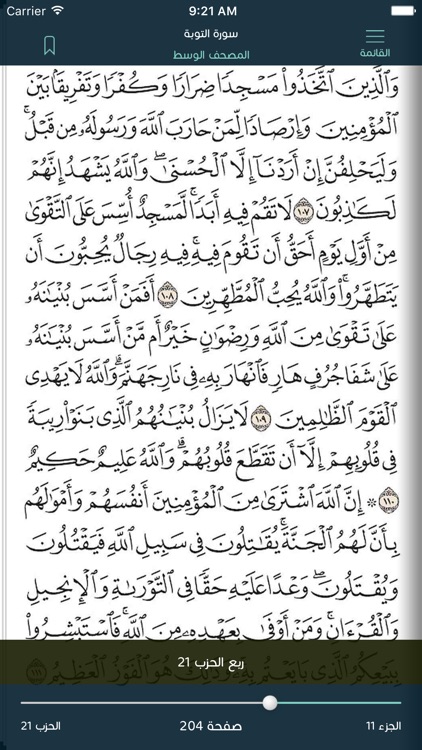 Carrier 9:21 AM
سورة التوبة
المصحف الوسط
القائمة
وَالَّذِينَ اتَّخَذُوا مَسْجِدًا ضِرَارًا وَكُفْرًا وَتَفْرِيقًا بَيْنَ
الْمُؤْمِنِينَ وَإِرْصَادًا لِّمَنْ حَارَبَ اللَّهَ وَرَسُولَهُ مِن قَبْلُ ۚ
وَلَيَحْلِفُنَّ إِنْ أَرَدْنَا إِلَّا الْحُسْنَىٰ ۖ وَاللَّهُ يَشْهَدُ إِنَّهُمْ
لَكَاذِبُونَ ١٠٧ لَا تَقُمْ فِيهِ أَبَدًا ۚ لَّمَسْجِدٌ أُسِّسَ عَلَى التَّقْوَىٰ
مِنْ أَوَّلِ يَوْمٍ أَحَقُّ أَن تَقُومَ فِيهِ ۚ فِيهِ رِجَالٌ يُحِبُّونَ أَن
يَتَطَهَّرُوا ۚ وَاللَّهُ يُحِبُّ الْمُطَّهِّرِينَ ١٠٨ أَفَمَنْ أَسَّسَ بُنْيَانَهُ
عَلَىٰ تَقْوَىٰ مِنَ اللَّهِ وَرِضْوَانٍ خَيْرٌ أَم مَّنْ أَسَّسَ بُنْيَانَهُ
عَلَىٰ شَفَا جُرُفٍ هَارٍ فَانْهَارَ بِهِ فِي نَارِ جَهَنَّمَ ۗ وَاللَّهُ لَا يَهْدِي
الْقَوْمَ الظَّالِمِينَ ١٠٩ لَا يَزَالُ بُنْيَانُهُمُ الَّذِي بَنَوْا رِيبَةً
فِي قُلُوبِهِمْ إِلَّا أَن تَقَطَّعَ قُلُوبُهُمْ ۗ وَاللَّهُ عَلِيمٌ حَكِيمٌ
١١٠ ۞ إِنَّ اللَّهَ اشْتَرَىٰ مِنَ الْمُؤْمِنِينَ أَنفُسَهُمْ وَأَمْوَالَهُم
بِأَنَّ لَهُمُ الْجَنَّةَ ۚ يُقَاتِلُونَ فِي سَبِيلِ اللَّهِ فَيَقْتُلُونَ
وَيُقْتَلُونَ ۖ وَعْدًا عَلَيْهِ حَقًّا فِي التَّوْرَاةِ وَالْإِنجِيلِ
وَالْقُرْآنِ ۚ وَمَنْ أَوْفَىٰ بِعَهْدِهِ مِنَ اللَّهِ ۚ فَاسْتَبْشِرُوا
بِبَيْعِكُمُ الَّذِي بَايَعْتُم بِهِ ۚ وَذَٰلِكَ هُوَ الْفَوْزُ الْعَظِيمُ ١١١
ربع الحزب 21
الجزء 11
صفحة 204
الحزب 21